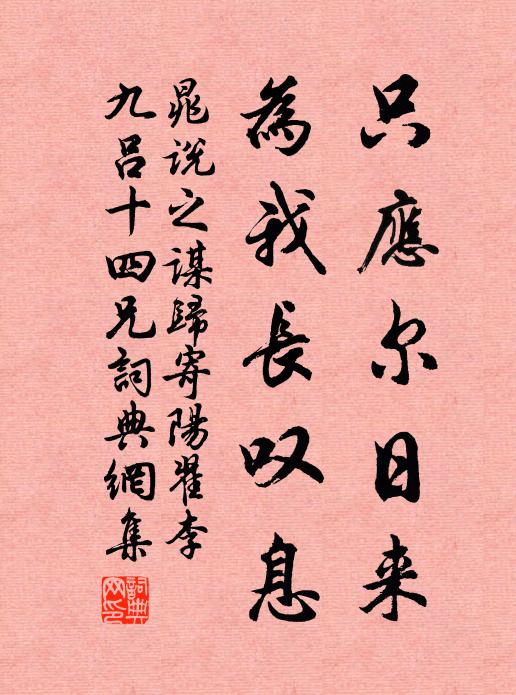 只應尔日来
為我長叹息
晁說之謀歸寄陽翟李
九呂十四兄詞典網集
詞典网印